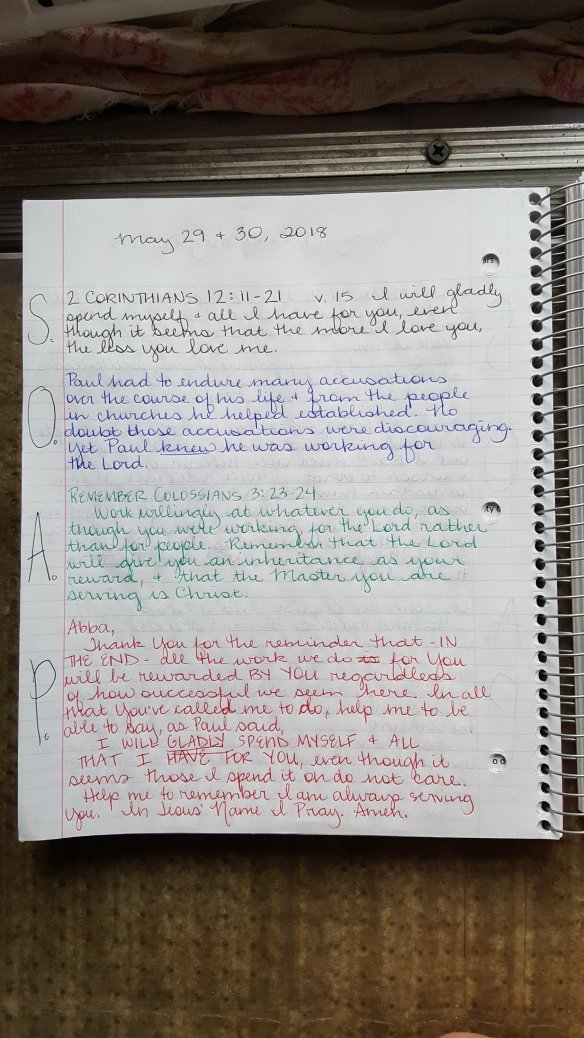 May 29 + 30, 2018
S. 2 CORINTHIANS 12:11-21 v. 15 I will gladly
spend myself + all I have for you, even
though it seems that the more I love you,
the less you love me.
O. Paul had to endure many accusations
over the course of his life + from the people
in churches he helped established. No
doubt those accusations were discouraging.
Yet Paul knew he was working for
the Lord.
A. REMEMBER COLOSSIANS 3:23-24
Work willingly at whatever you do, as
though you were working for the Lord rather
than for people. Remember that the Lord
will give you an inheritance as your
reward, + that the Master you are
serving is Christ.
P. Abba,
Thank You for the reminder that -IN
THE END- all the work we do for You
will be rewarded BY YOU regardless
of how successful we seem here. In all
that You've called me to do, help me to be
able to say, as Paul said,
I WILL GLADLY SPEND MYSELF + ALL
THAT I HAVE FOR YOU, even though it
seems those I spend it on do not care.
Help me to remember I am always serving
You. In Jesus' Name I Pray. Amen.